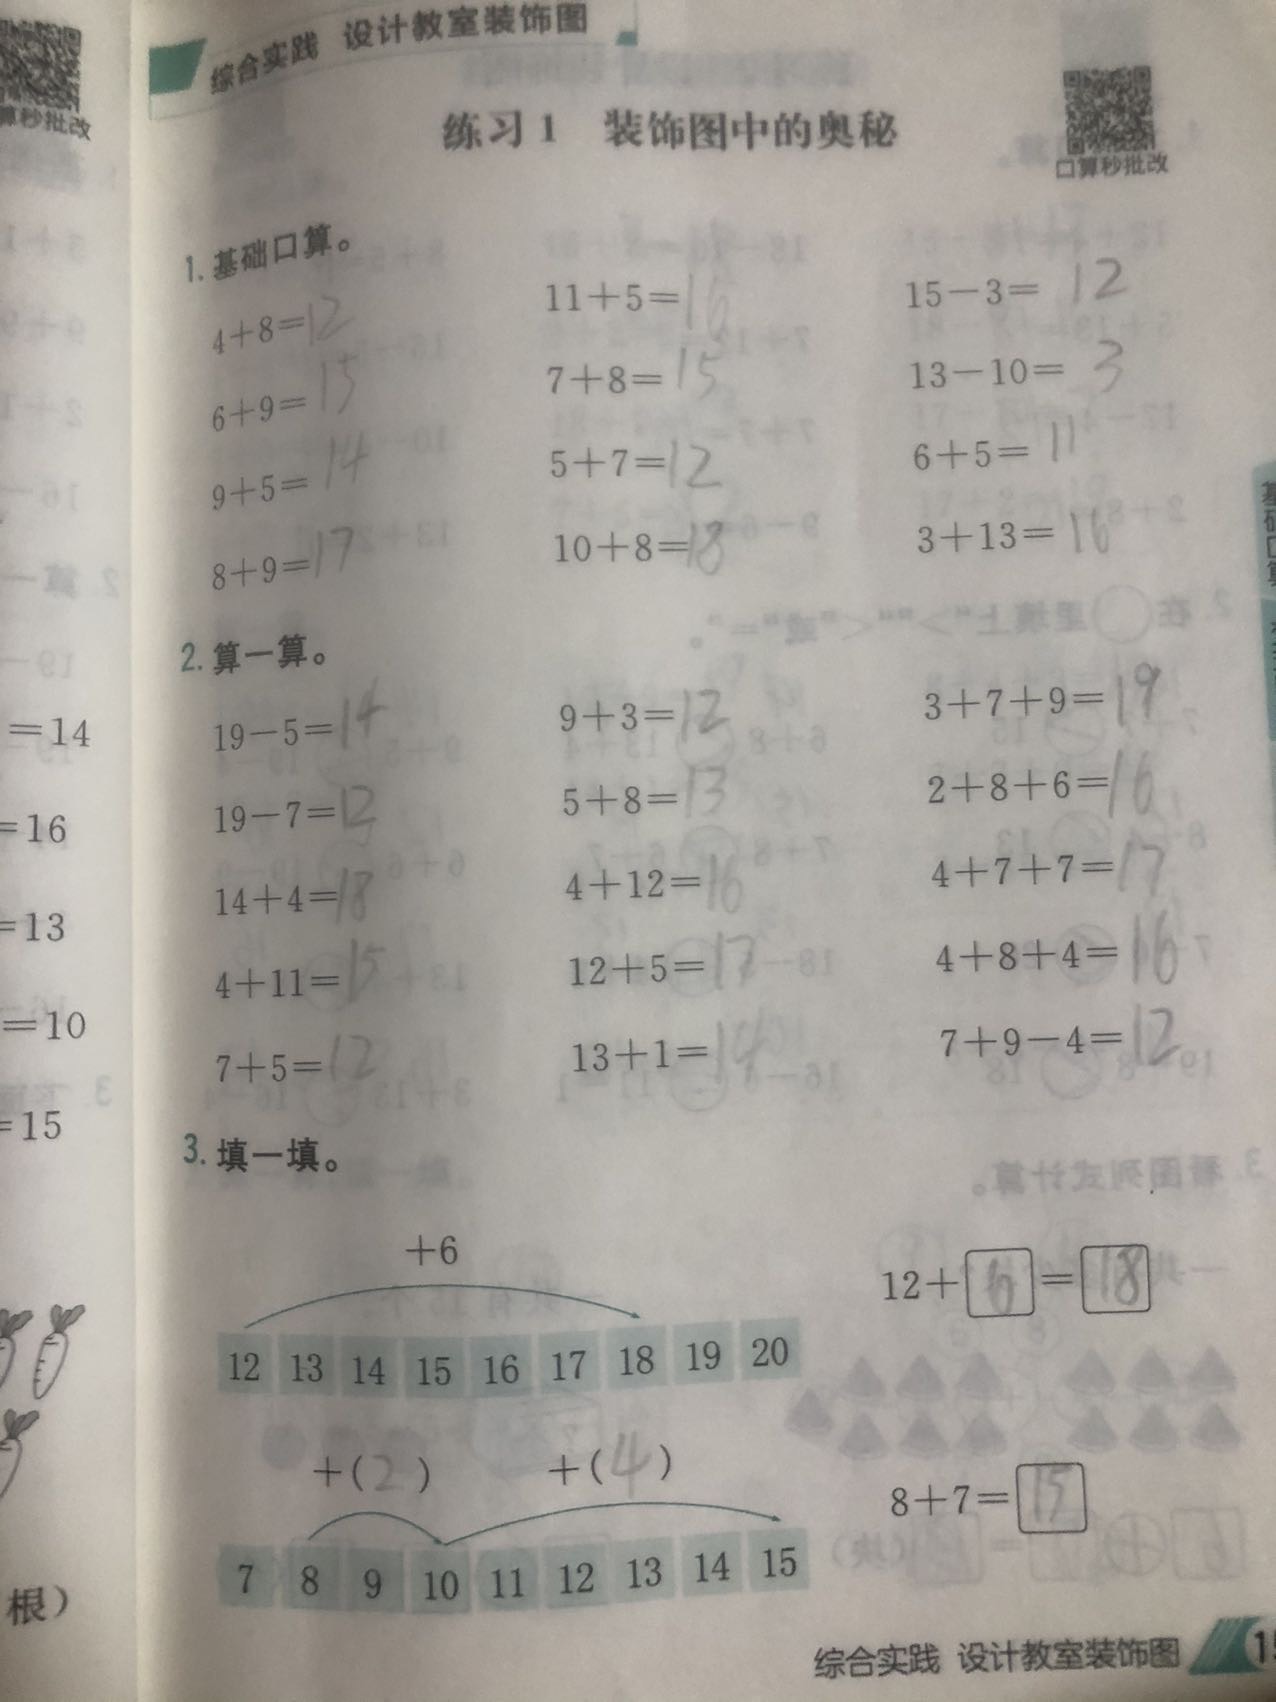 综合实践 设计教室装饰图
算秒批改
练习1 装饰图中的奥秘
口算秒批改
1. 基础口算。
4+8=12 11+5=16 15-3=12
6+9=15 7+8=15 13-10=3
9+5=14 5+7=12 6+5=11
8+9=17 10+8=18 3+13=16
2. 算一算。
19-5=14 9+3=12 3+7+9=19
19-7=12 5+8=13 2+8+6=16
14+4=18 4+12=16 4+7+7=17
4+11=15 12+5=17 4+8+4=16
7+5=12 13+1=14 7+9-4=12
3. 填一填。
+6
12+6=18
12 13 14 15 16 17 18 19 20
+(2) +(4)
8+7=15
7 8 9 10 11 12 13 14 15
综合实践 设计教室装饰图
=14
=16
=13
=10
=15
根)